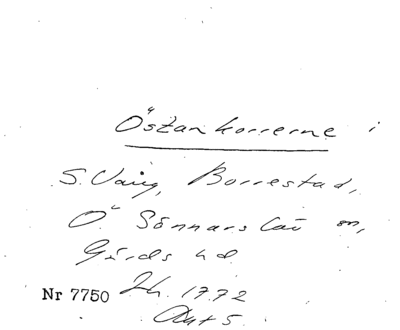 Östankorrerne i
S. Vång, Borrestad,
Ö. Sönnarslöv sn,
Gärds hd
Nr 7750 Zh. 1772
Akt 5.